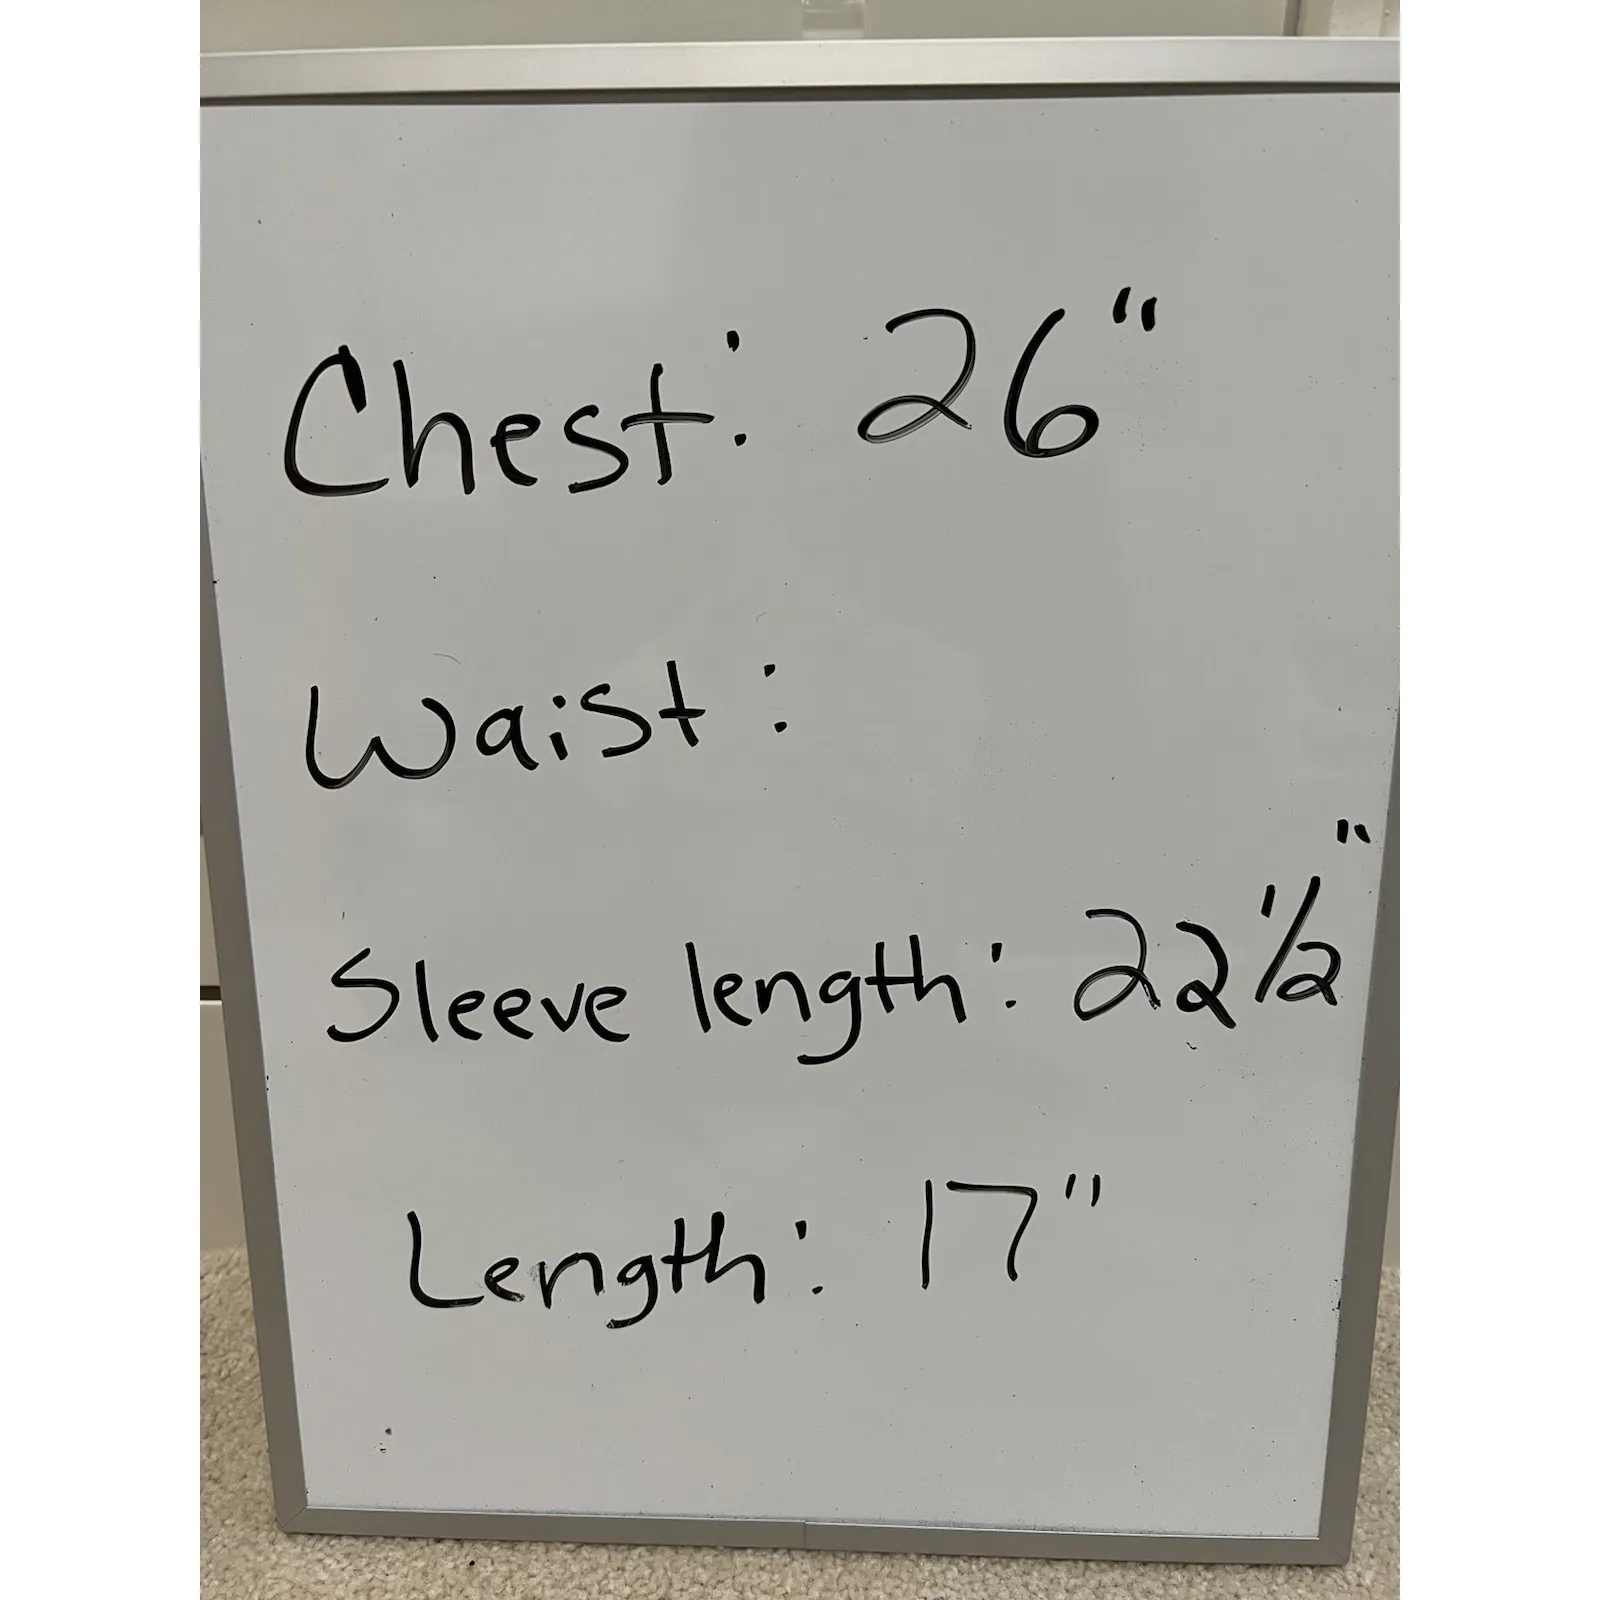 Chest: 26"
Waist:
Sleeve length: 22 1/2"
Length: 17"